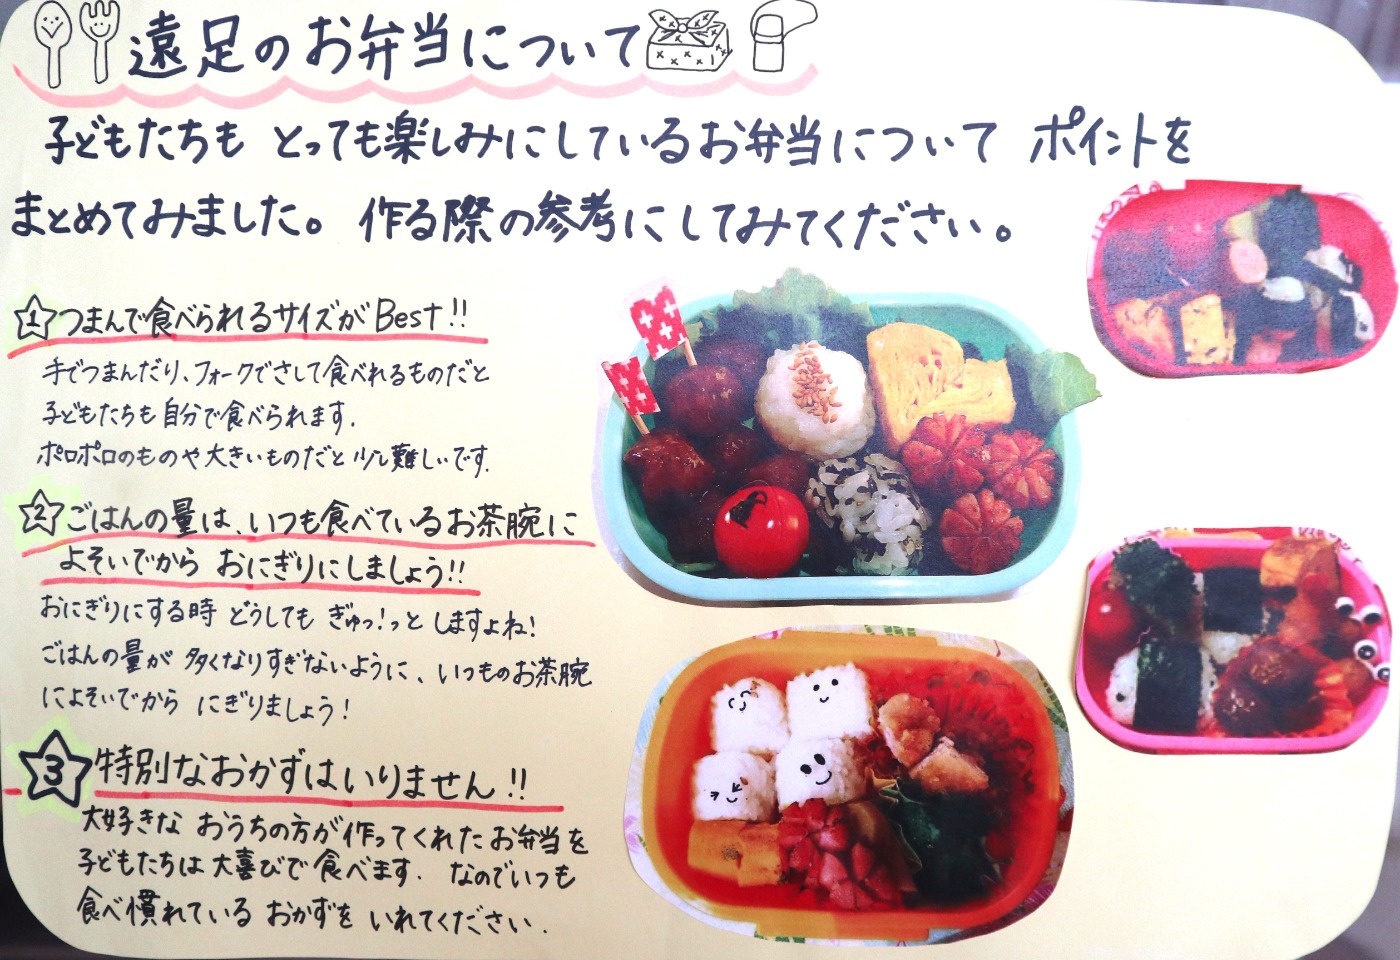 遠足のお弁当について
子どもたちも とっても楽しみにしているお弁当について ポイントを
まとめてみました。 作る際の参考にしてみてください。
1 つまんで食べられるサイズがBest!!
手でつまんだり、フォークでさして食べれるものだと
子どもたちも自分で食べられます.
ポロポロのものや大きいものだと少し難しいです.
2 ごはんの量は、いつも食べているお茶腕に
よそいでから おにぎりにしましょう!!
おにぎりにする時 どうしても ぎゅっ!っと しますよね!
ごはんの量が 多くなりすぎないように、いつものお茶腕
によそいでから にぎりましょう!
3 特別なおかずはいりません!!
大好きな おうちの方が作ってくれたお弁当を
子どもたちは大喜びで食べます. なのでいつも
食べ慣れている おかずを いれてください.